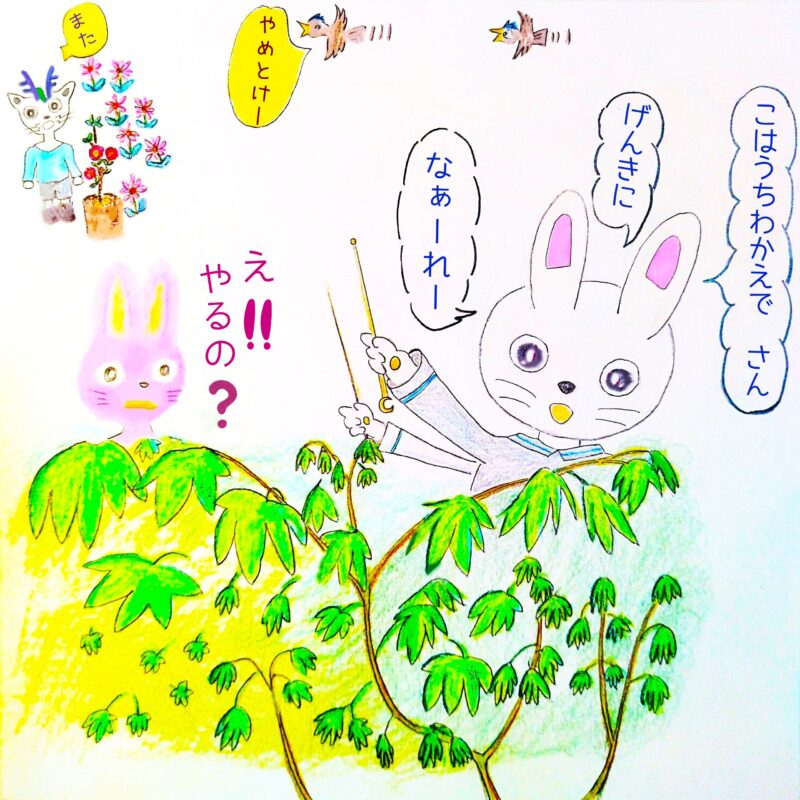 こはうちわかえで さん
げんきに
なぁーれー
やめとけー
え‼
やるの?
また